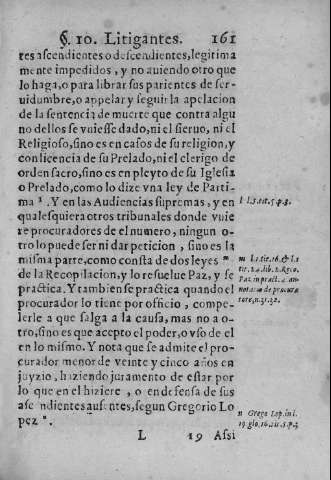 §. 10. Litigantes. 161
res ascendientes o descendientes, legitima
mente impedidos, y no auiendo otro que
lo haga, o para librar sus parientes de ser-
uidumbre, o appelar y seguir la apelacion
de la sentencia de muerte que contra algu
no dellos se vuiesse dado, ni el sieruo, ni el
Religioso, sino es en casos de su religion, y
con licencia de su Prelado, ni el clerigo de
orden sacro, sino es en pleyto de su Iglesia
o Prelado, como lo dize vna ley de Parti-
ma l. Y en las Audiencias supremas, y en
qualesquiera otros tribunales donde vuie
re procuradores de el numero, ningun o-
tro lo puede ser ni dar peticion, sino es la
misma parte, como consta de dos leyes m
de la Recopilacion, y lo resuelue Paz, y se
practica. Y tambien se practica quando el
procurador lo tiene por officio, compe-
lerle a que salga a la causa, mas no a o-
tro, sino es que acepto el poder, o vso de el
en lo mismo. Y nota que se admite el pro-
curador menor de veynte y cinco años en
juyzio, haziendo juramento de estar por
lo que en el hiziere, o en defensa de sus
ascendientes ausentes, segun Gregorio Lo
pez n.
L 19 Assi
l l. 5. tit. 5. p. 3.
m l. 4. tit. 16. & l. 2
tit. 24. lib. 2. Reco.
Paz in pract. 4. an-
notatio de procura
tore, n. 31. 32.
n Grego Lop. in l.
19. glo. 16. tit. 5. p. 3